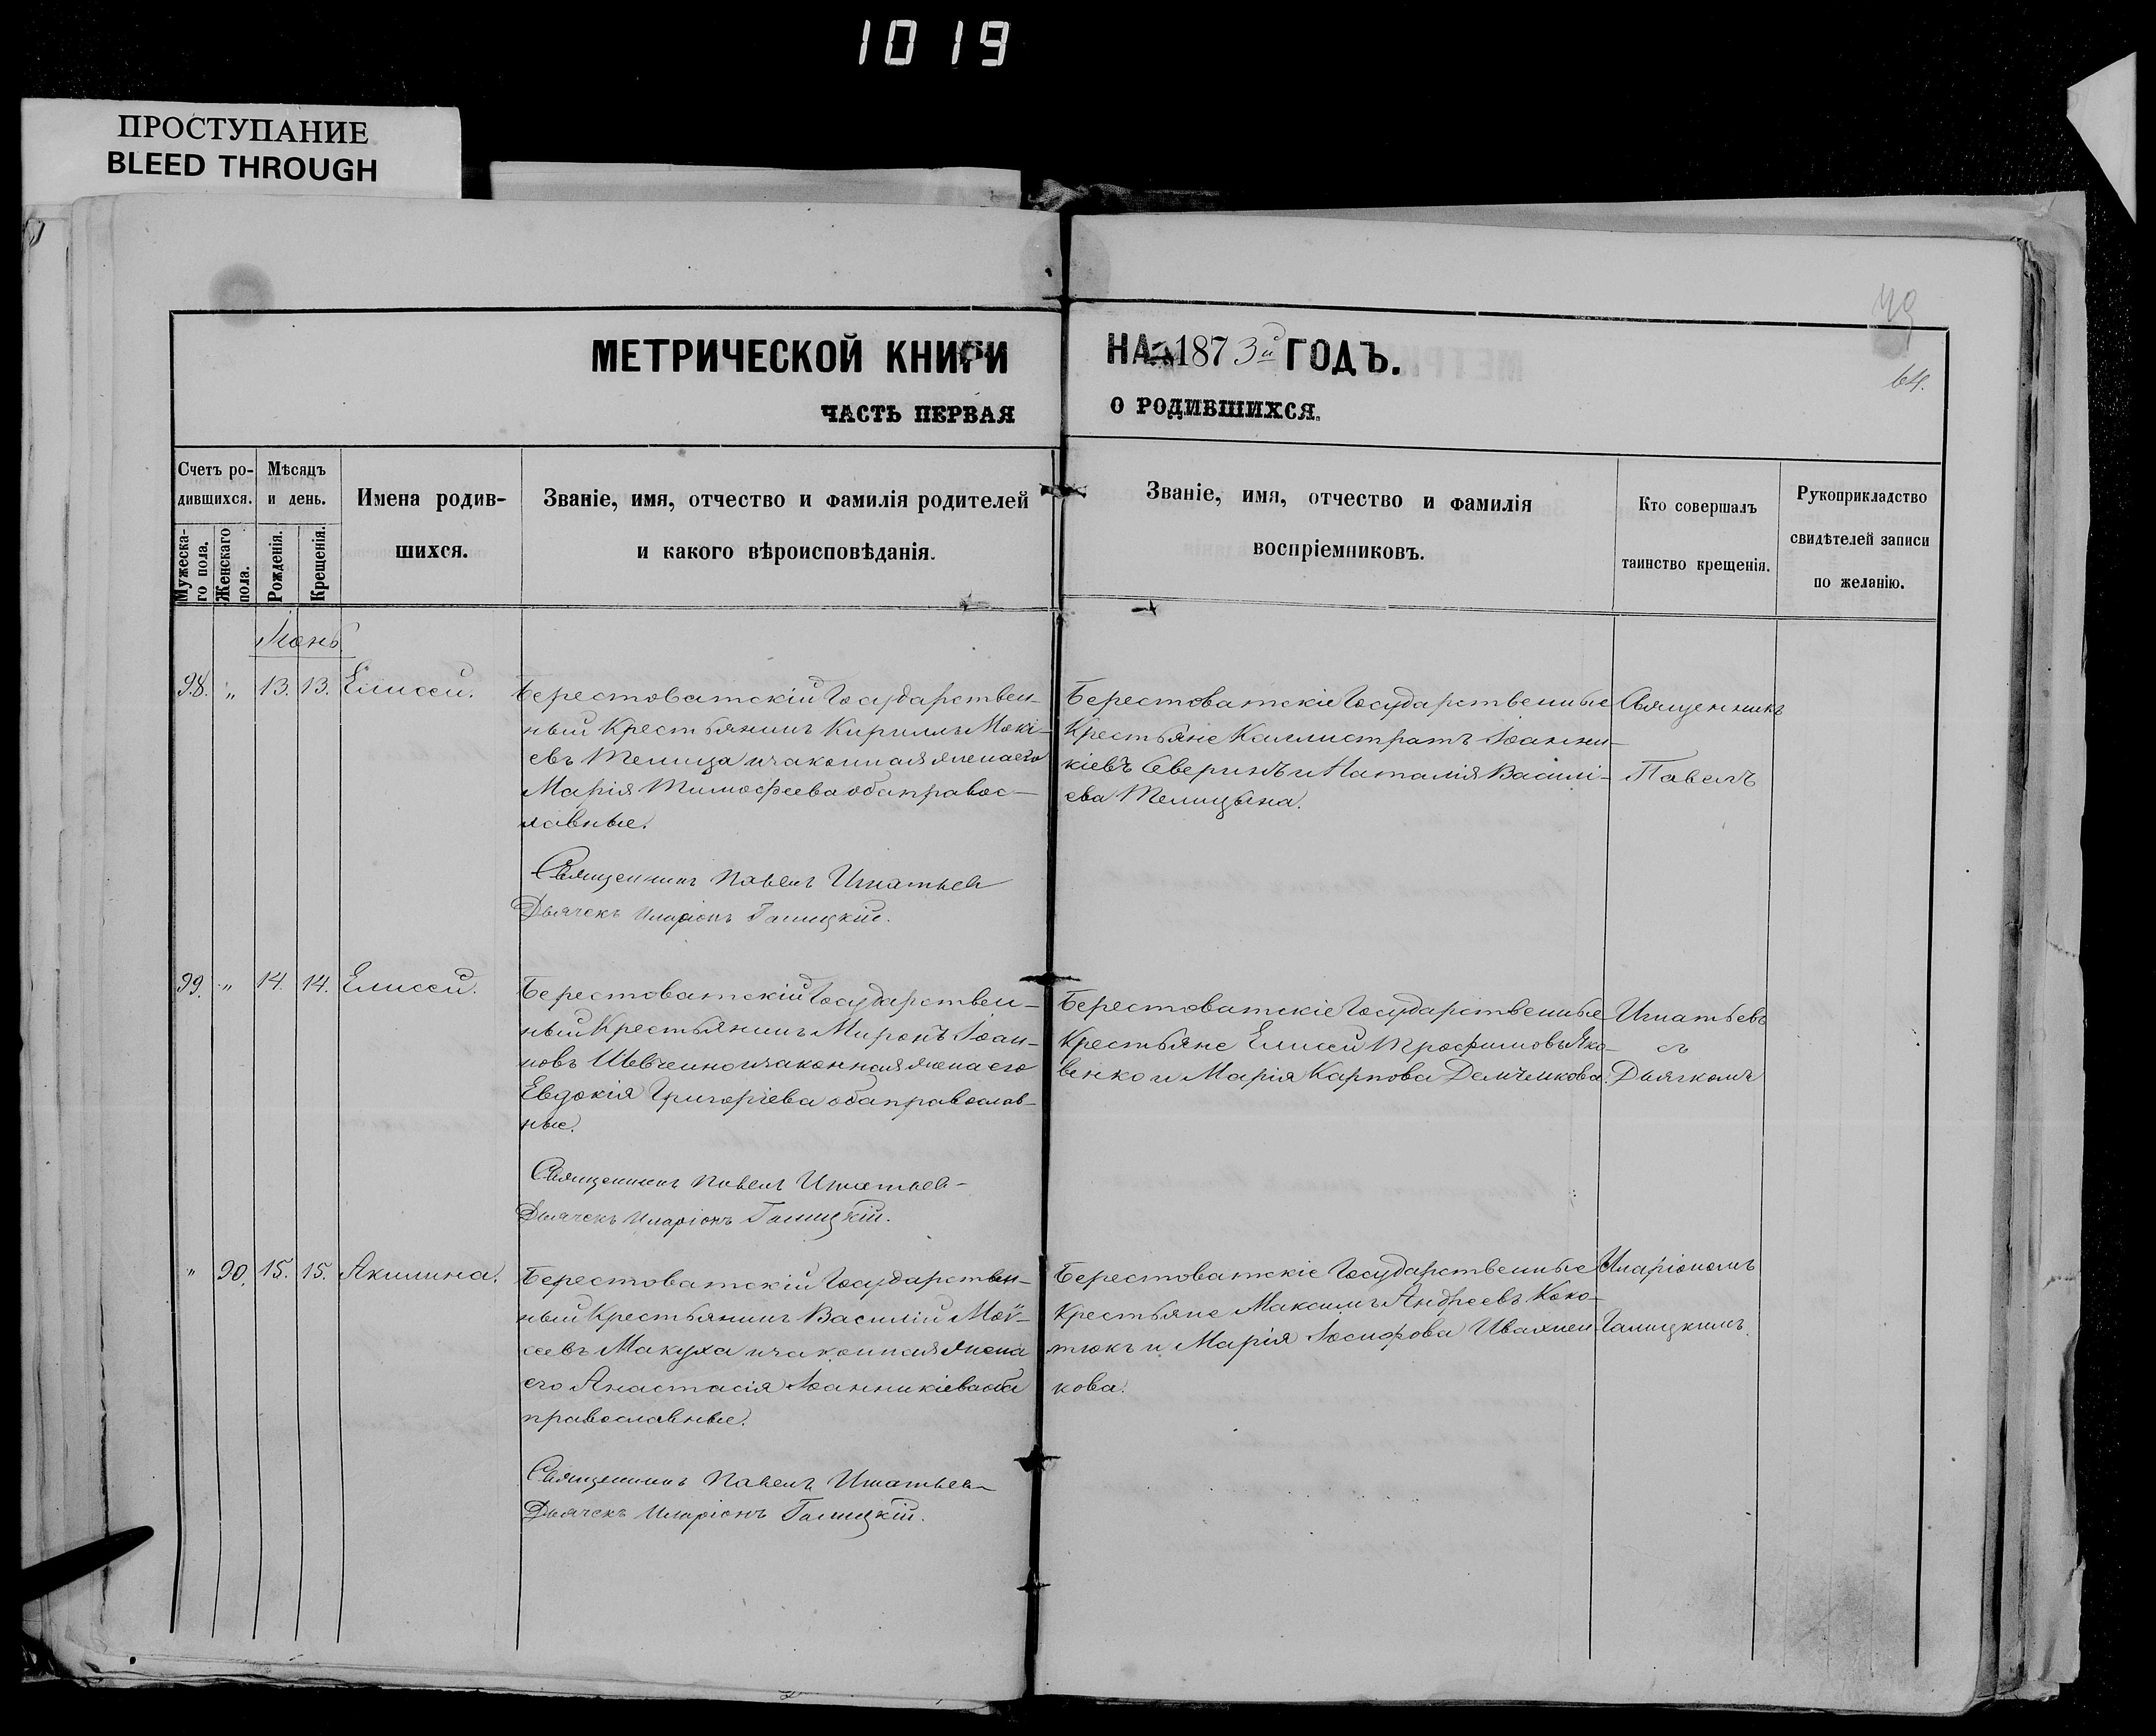 1019
ПРОСТУПАНИЕ
BLEED THROUGH
49
64.
МЕТРИЧЕСКОЙ КНИГИ НА 1873й ГОДЪ.
ЧАСТЬ ПЕРВАЯ О РОДИВШИХСЯ.
Счетъ ро-
дившихся.
Мужеска-
го пола.
Женскаго
пола.
Мѣсяцъ
и день.
Рожденія.
Крещенія.
Имена родив-
шихся.
Званіе, имя, отчество и фамилія родителей
и какого вѣроисповѣданія.
Званіе, имя, отчество и фамилія
воспріемниковъ.
Кто совершалъ
таинство крещенія.
Рукоприкладство
свидѣтелей записи
по желанію.
Іюнь
98. " 13. 13. Елисей.
Берестоватскій Государствен-
ный Крестьянинъ Кириллъ Мокі-
евъ Телица и законная жена его
Марія Тимофеева оба правос-
лавные.
Священникъ Павелъ Игнатьев
Дьячекъ Иларіонъ Галицкій.
Берестоватскіе Государственные
Крестьяне Каллистратъ Іоанни-
кіевъ Северинъ и Наталія Василі-
ева Телицына.
Священникъ
Павелъ
99. " 14. 14. Елисей.
Берестоватскій Государствен-
ный Крестьянинъ Миронъ Іоан-
новъ Шевченко и законная жена его
Евдокія Григоріева оба православ-
ные.
Священникъ Павелъ Игнатьев
Дьячекъ Иларіонъ Галицкій.
Берестоватскіе Государственные
Крестьяне Елисей Трофимовъ Яко-
венко и Марія Карпова Демченкова.
Игнатьевъ
съ
Дьячкомъ
" 90. 15. 15. Акилина.
Берестоватскій Государствен-
ный Крестьянинъ Василій Мой-
сеевъ Макуха и законная жена
его Анастасія Іоанникіева оба
православные.
Священникъ Павелъ Игнатьев
Дьячекъ Иларіонъ Галицкій.
Берестоватскіе Государственные
Крестьяне Максимъ Андреевъ Коко-
тюкъ и Марія Іосифова Ивахнен-
кова.
Иларіономъ
Галицкимъ.